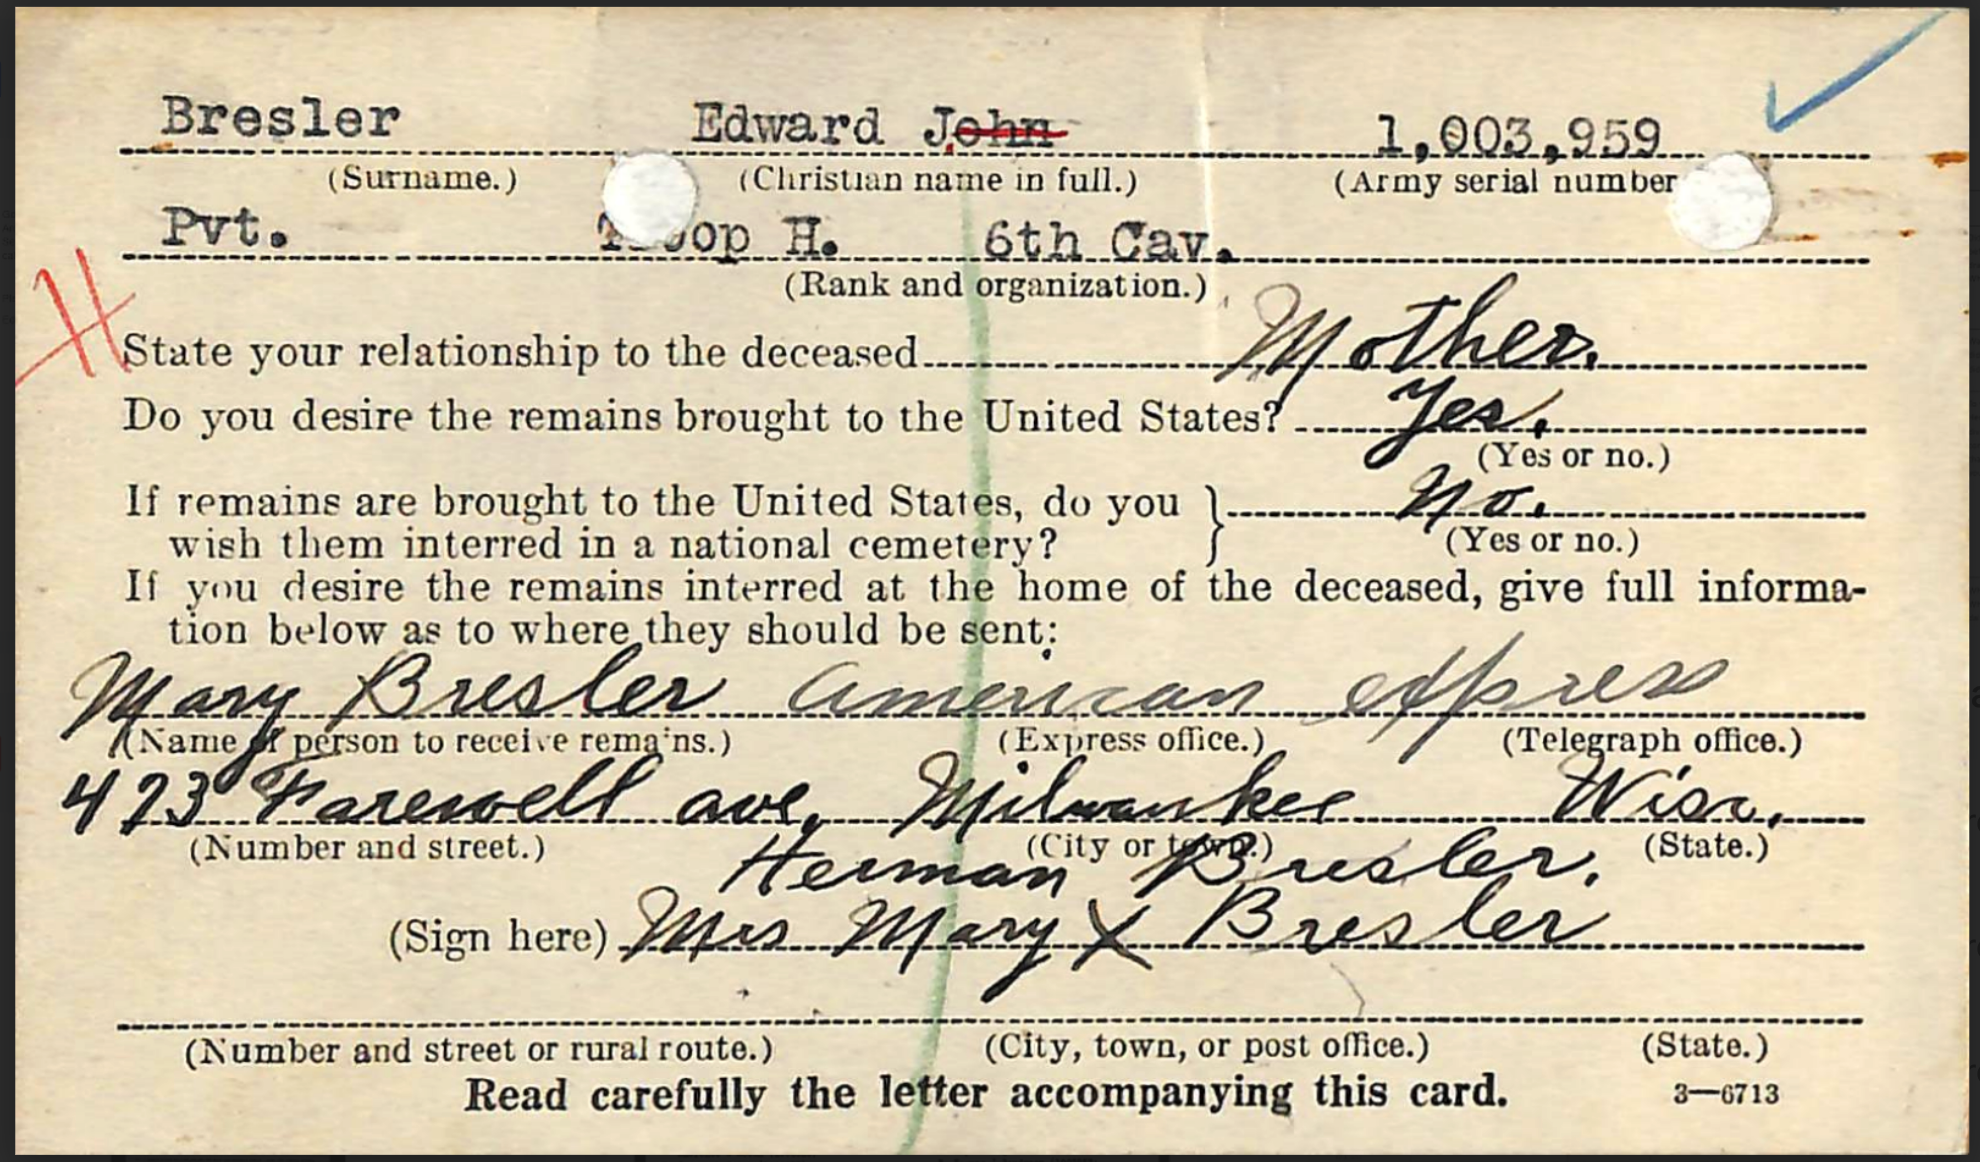 Bresler Edward John 1,003,959
(Surname.) (Christian name in full.) (Army serial number
Pvt. Troop H. 6th Cav.
(Rank and organization.)
H
State your relationship to the deceased Mother.
Do you desire the remains brought to the United States? Yes.
(Yes or no.)
If remains are brought to the United States, do you } No.
wish them interred in a national cemetery? (Yes or no.)
If you desire the remains interred at the home of the deceased, give full informa-
tion below as to where they should be sent:
Mary Bresler American express
(Name of person to receive remains.) (Express office.) (Telegraph office.)
473 Farewell ave, Milwaukee Wisc.
(Number and street.) (City or town.) (State.)
Herman Bresler.
(Sign here) Mrs Mary X Bresler
(Number and street or rural route.) (City, town, or post office.) (State.)
Read carefully the letter accompanying this card. 3—6713